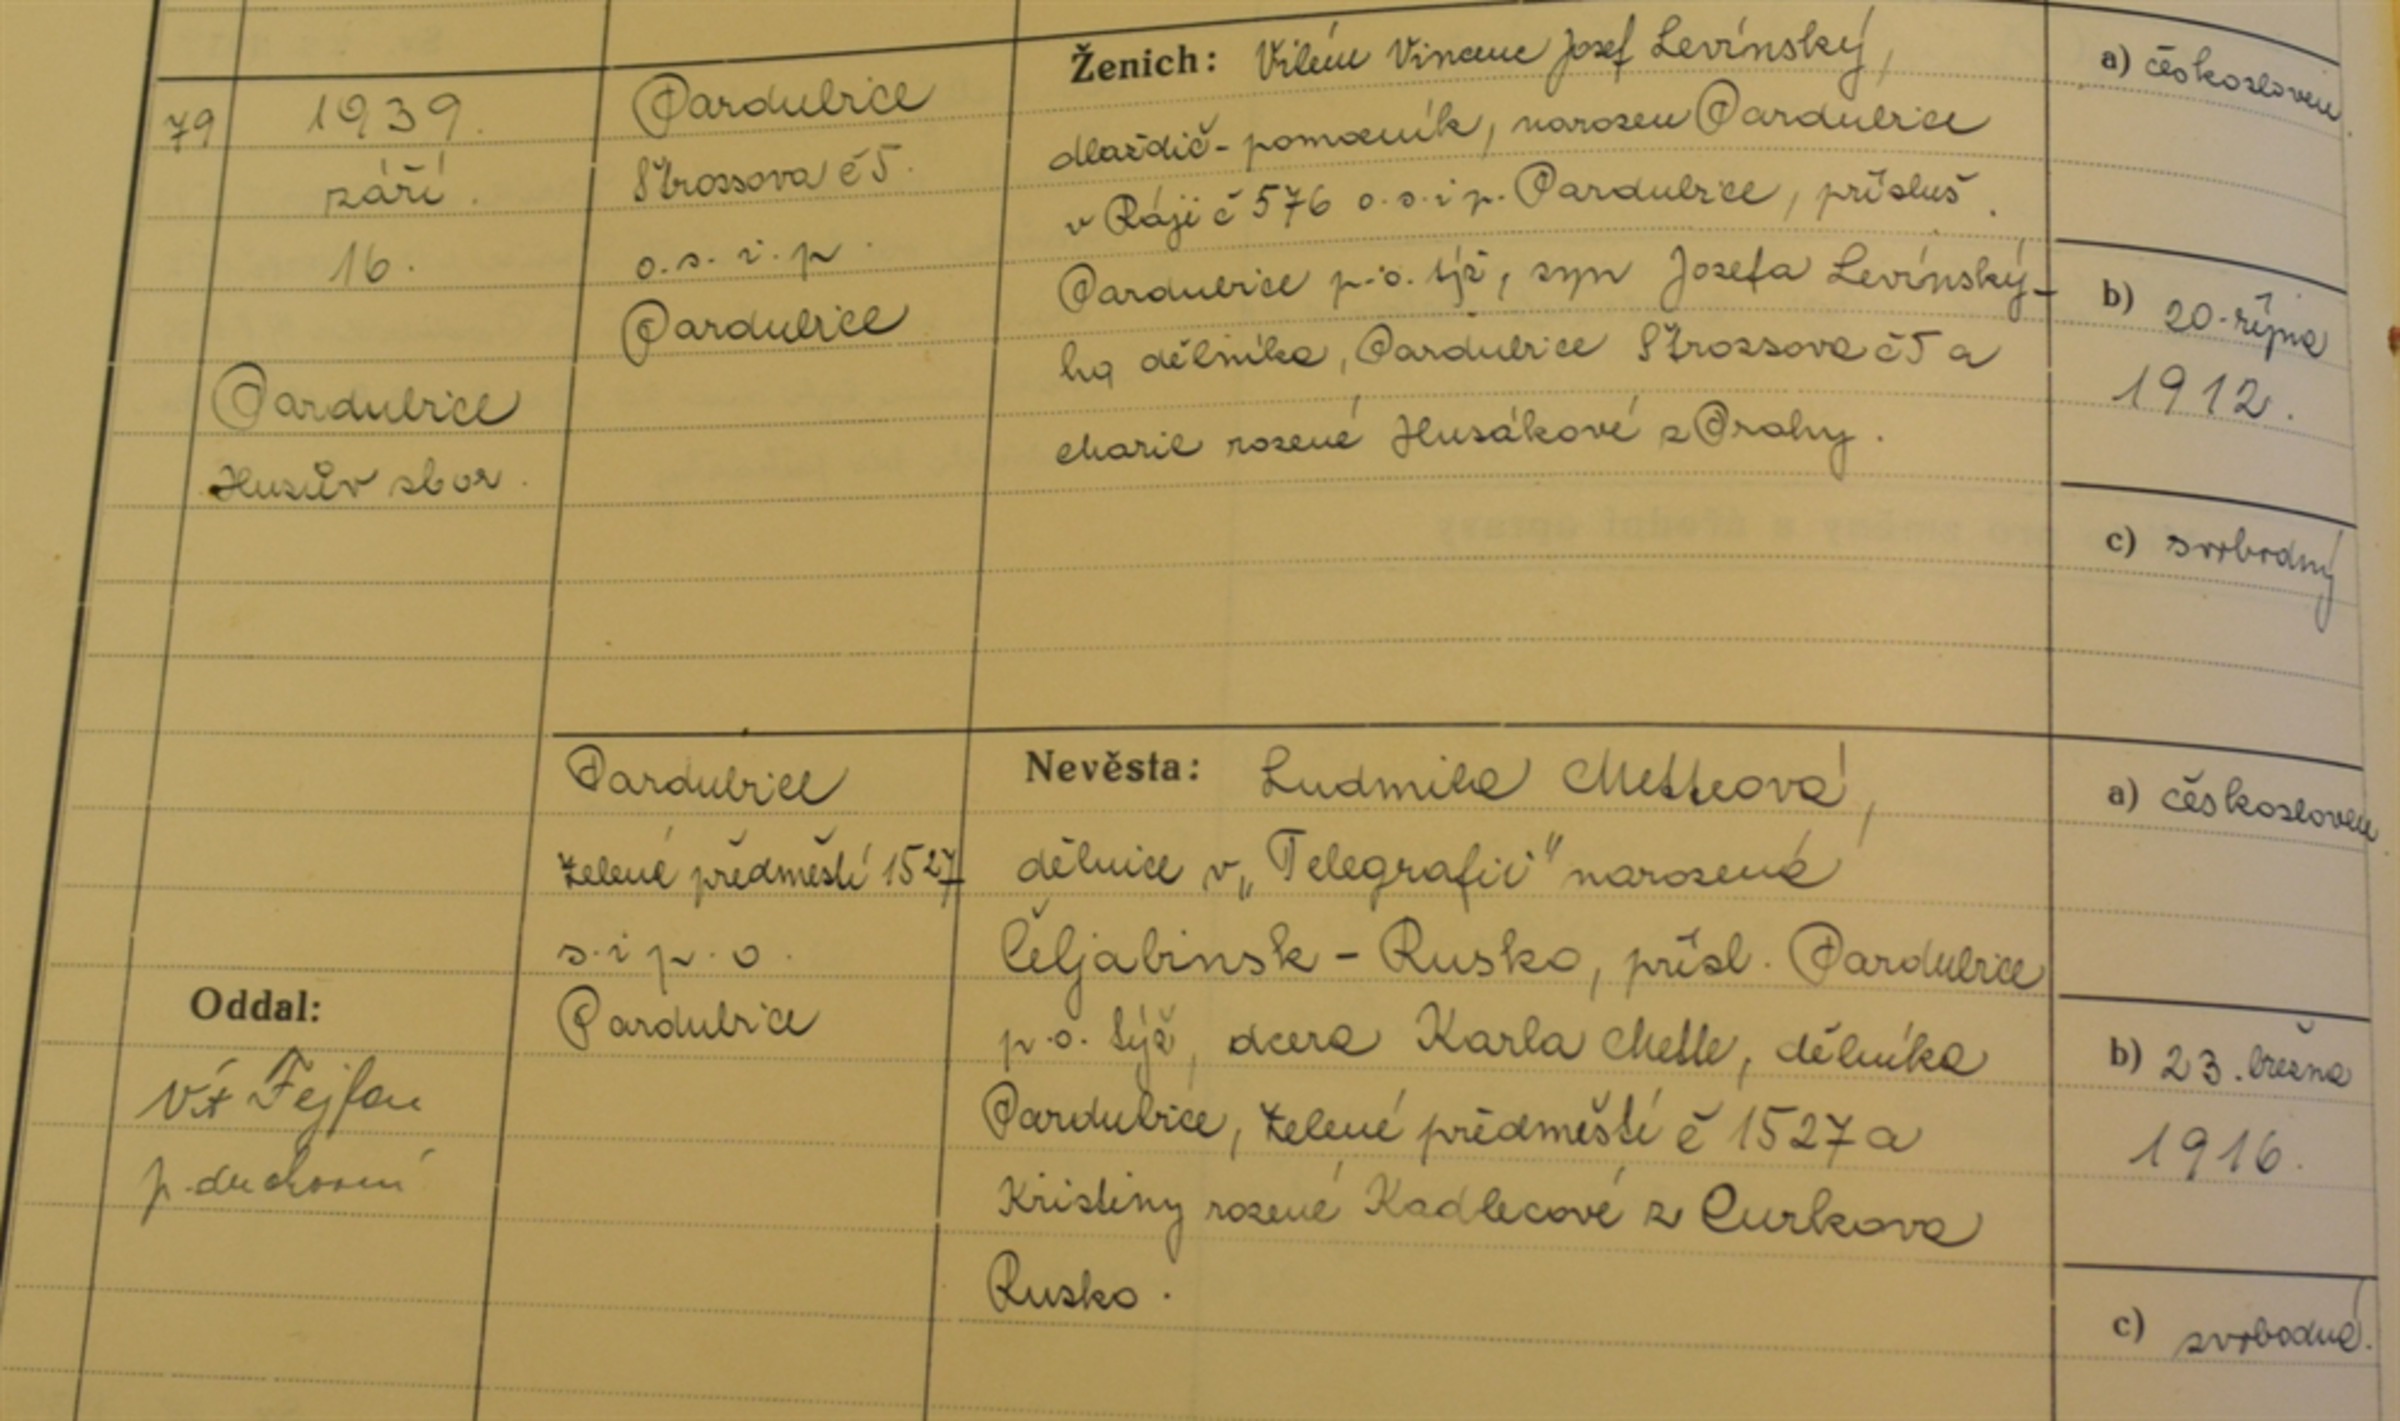 79
1939.
září.
16.
Pardubice
Husův sbor.
Oddal:
Vít Fejfar
p. duchovní
Pardubice
Štrossova č 5.
o. s. i. p.
Pardubice
Ženich: Vilém Vincenc Josef Levínský,
dlaždič-pomocník, narozen Pardubice
v Ráji č 576 o. s. i p. Pardubice, přísluš.
Pardubice p. o. týž, syn Josefa Levínský-
ho dělníka, Pardubice Štrossova č 5 a
Marie rozené Husákové z Prahy.
a) českosloven.
b) 20. října
1912.
c) svobodný
Pardubice
Zelené předměstí 1527
s. i p. o.
Pardubice
Nevěsta: Ludmila Metteová,
dělnice v „Telegrafii" narozená
Čeljabinsk - Rusko, přísl. Pardubice
p. o. týž, dcera Karla Mette, dělníka
Pardubice, Zelené předměstí č 1527 a
Kristiny rozené Kadlecové z Curkova
Rusko.
a) českosloven
b) 23. března
1916.
c) svobodná.